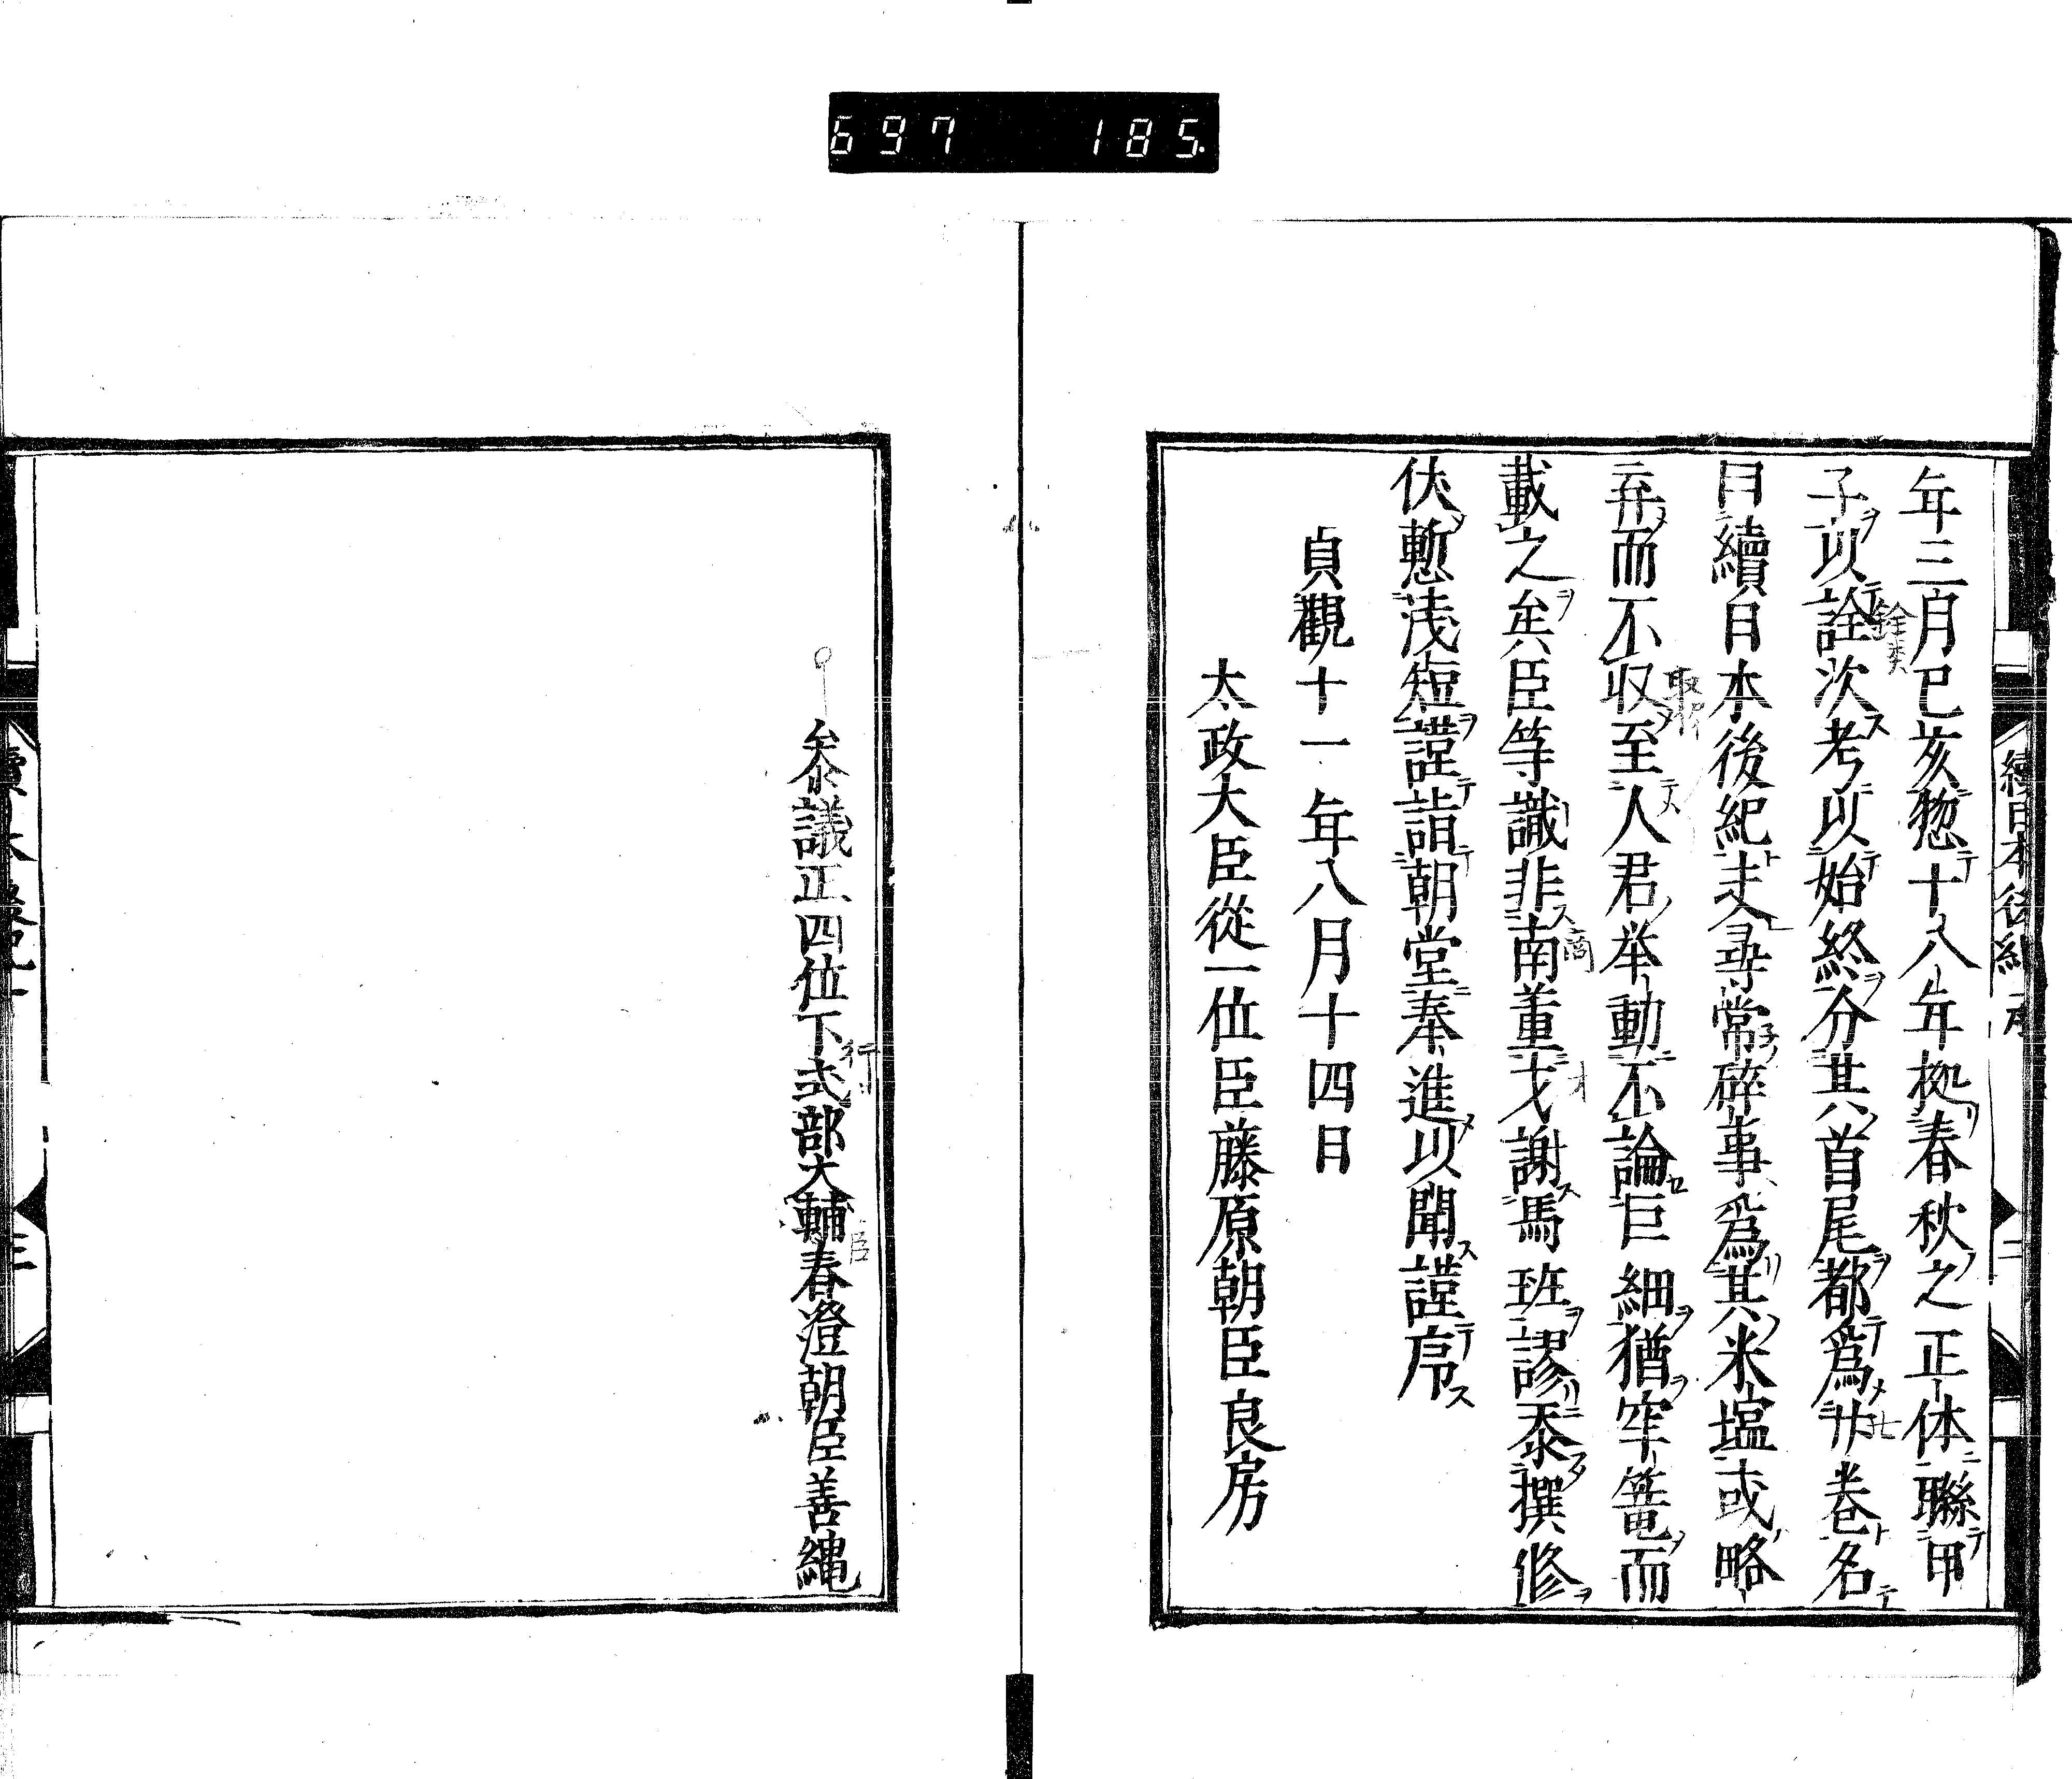 697 185.
續日本後紀序 二
年三月已亥惣十八年拠春秋之正体聯甲
子以詮次考以始終分其首尾都爲廿巻名
曰續日本後紀夫尋常碎事爲其米塩或略
弃而不収至人君举動不論巨細猶窂篭而
載之矣臣等識非南董才謝馬班謬忝撰修
伏慙浅短謹詣朝堂奉進以聞謹序
貞觀十一年八月十四日
太政大臣從一位臣藤原朝臣良房
参議正四位下式部大輔春澄朝臣善縄